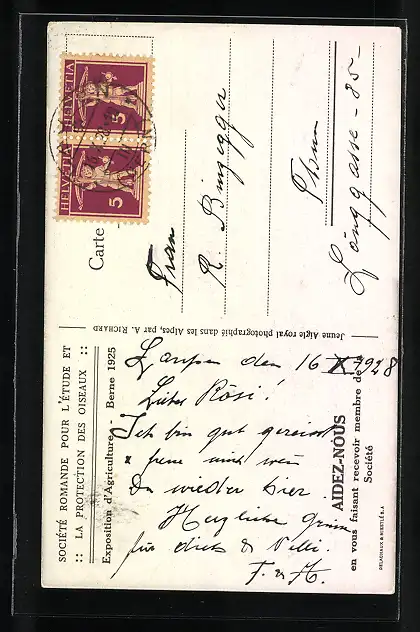 SOCIÉTÉ ROMANDE POUR L'ÉTUDE ET
:: LA PROTECTION DES OISEAUX ::
Exposition d'Agriculture - Berne 1925
Laupen den 16 X 1928
Liebes Rösi!
Ich bin gut gereist
& freue mich wenn
Du wieder hier
Herzliche Grüsse
für dich & Willi.
F. & H.
AIDEZ-NOUS
en vous faisant recevoir membre de
Société
DELACHAUX & NIESTLÉ S.A
Jeune Aigle royal photographié dans les Alpes, par A. RICHARD
Carte
HELVETIA 5
HELVETIA 5
Frau
R. Binggeli
Thun
Länggasse - 85 -